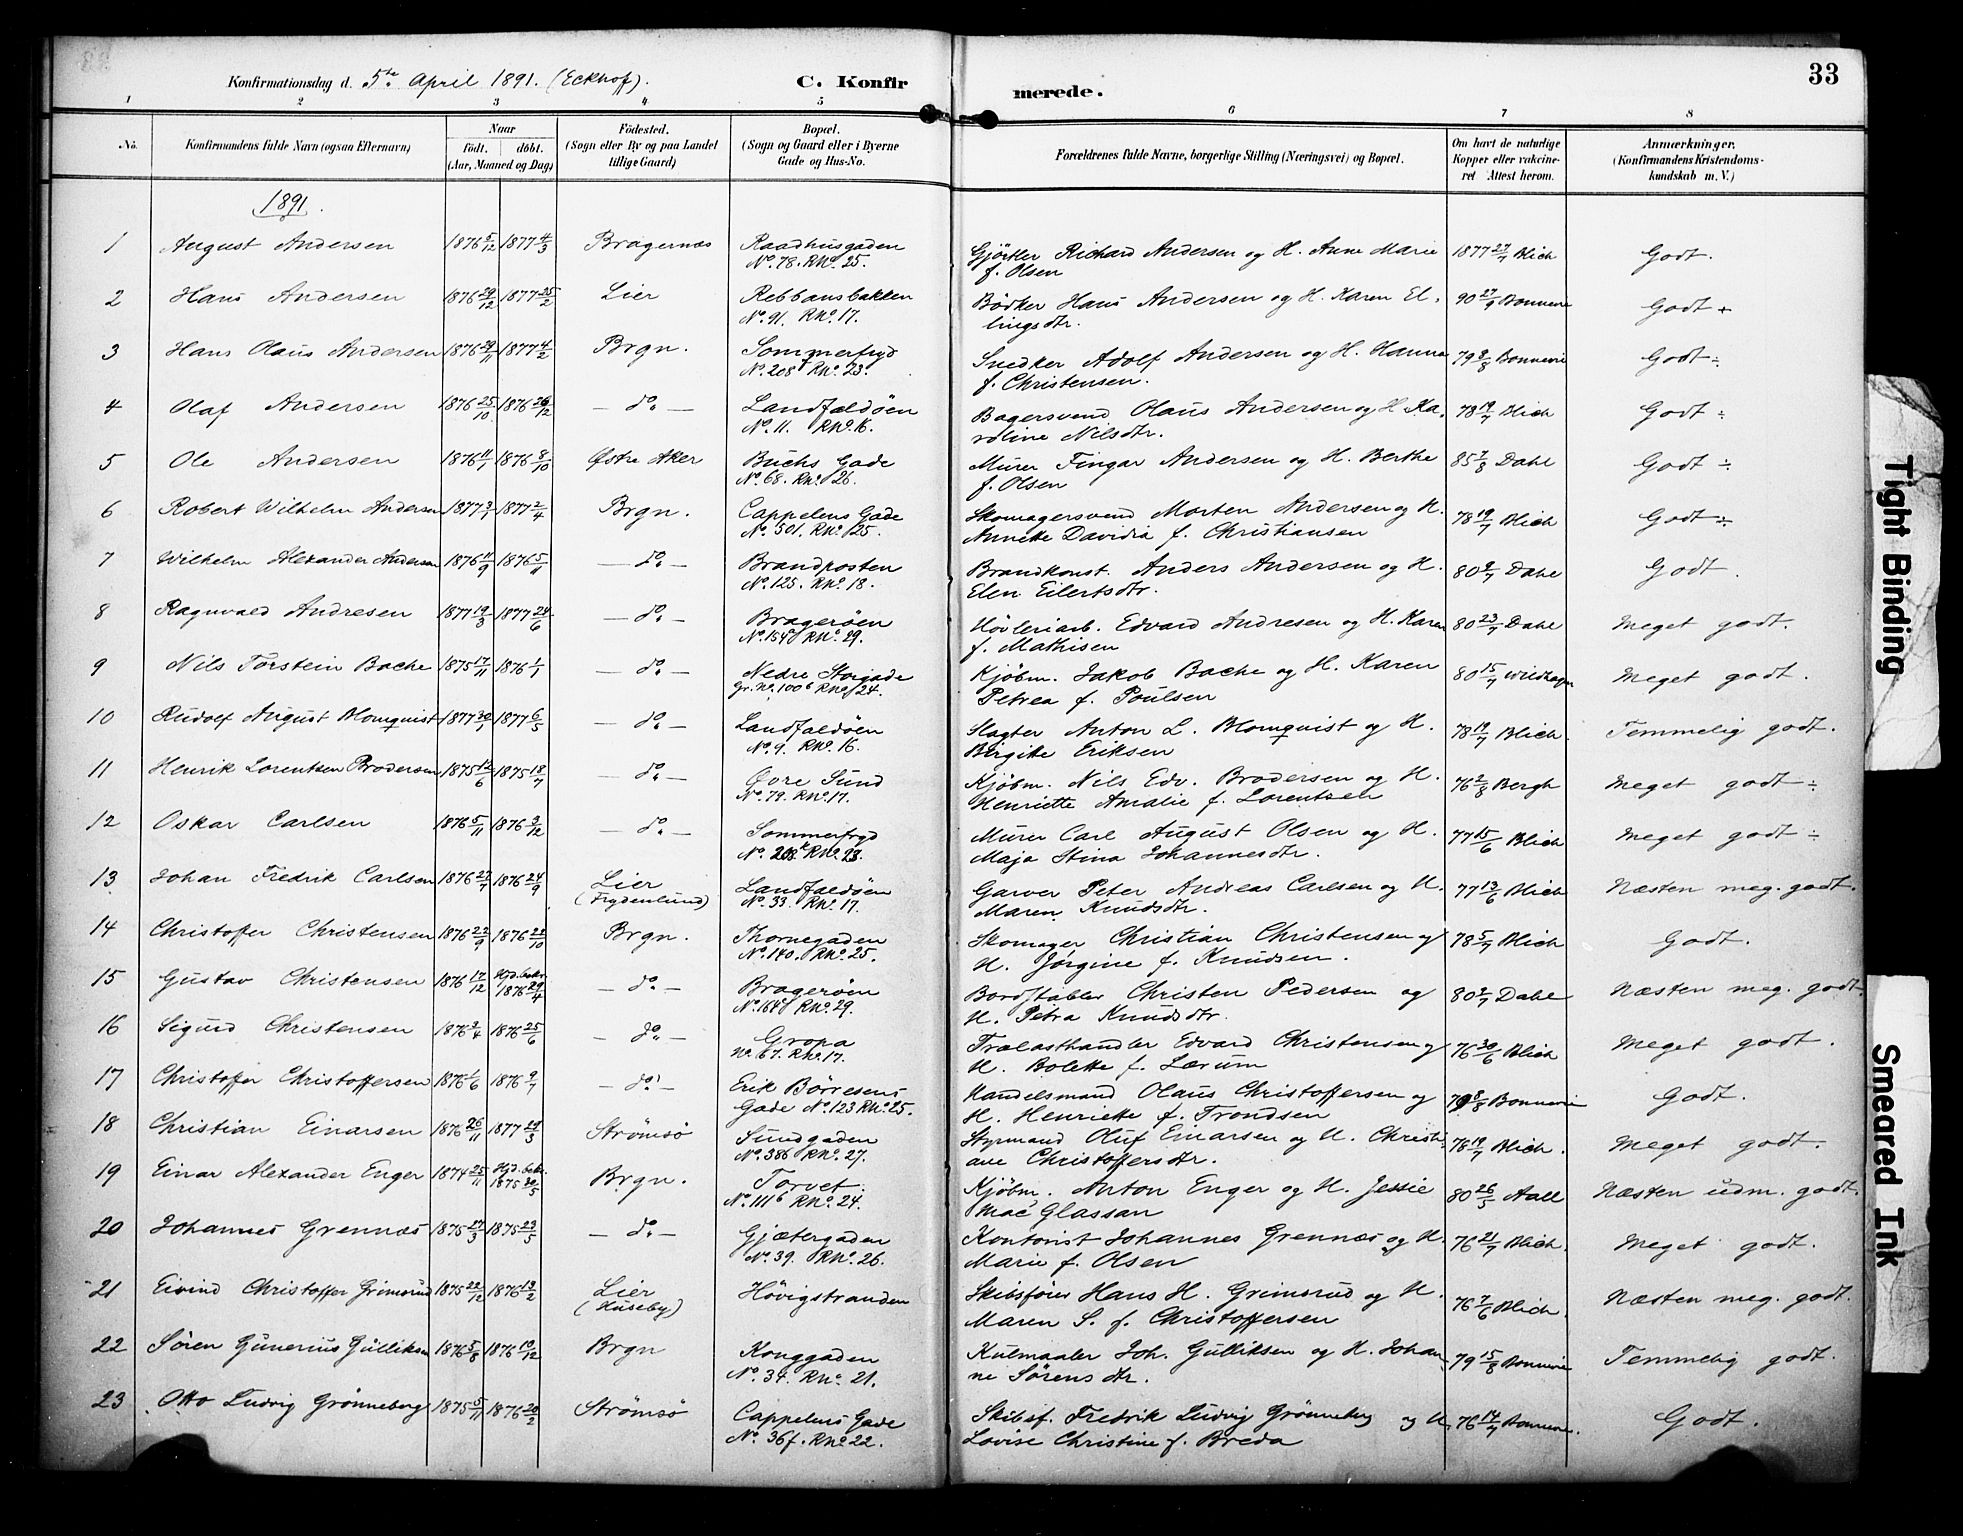 33
Konfirmationsdag d. 5te April 1891. (Eckhoff).
C. Konfirmerede.
1 2 3 4 5 6 7 8
No.
Konfirmandens fulde Navn (ogsaa Efternavn)
Naar
født. døbt.
(Aar, Maaned og Dag)
Fødested.
(Sogn eller By og paa Landet
tillige Gaard)
Bopæl.
(Sogn og Gaard eller i Byerne
Gade og Hus-No.
Forældrenes fulde Navne, borgerlige Stilling (Næringsvei) og Bopæl.
Om havt de naturlige
Kopper eller vakcine-
ret Attest herom.
Anmærkninger.
(Konfirmandens Kristendoms-
kundskab m. V.)
1891.
1 August Andersen 1876 5/12 1877 4/3 Bragernæs Raadhusgaden Gjørtler Richard Andersen og H. Anne Marie 1877 27/7 Blich Godt.
No. 78. RNo. 25. f. Olsen
2 Hans Andersen 1876 29/12 1877 25/2 Lier Rebbansbakken Bødker Hans Andersen og H. Karen El- 90 27/9 Bonnevie Godt +
No. 91. RNo. 17. lingsdtr.
3 Hans Olaus Andersen 1876 29/11 1877 4/2 Brgn. Sommerfryd Snedker Adolf Andersen og H. Hanna 79 8/8 Bonnevie Godt ÷
No. 208 RNo. 23. f. Christensen.
4 Olaf Andersen 1876 25/10 1876 26/12 — do. — Landfaldøen Bagersvend Olaus Andersen og H. Ka- 78 19/7 Blich Godt ÷
No. 11. RNo. 16. roline Nilsdtr.
5 Ole Andersen 1876 11/1 1876 8/10 Østre Aker Buchs Gade Murer Fingar Andersen og H. Berthe 85 7/8 Dahl Godt ÷
No. 68. RNo. 26. f. Olsen
6 Robert Wilhelm Andersen 1877 3/1 1877 2/4 Brgn. Cappelens Gade Skomagersvend Morten Andersen og H. 78 19/7 Blich Godt ÷
No. 301. RNo. 25. Annette Davidia f. Christiansen
7 Wilhelm Alexander Andersen 1876 11/9 1876 5/11 — do. — Brandposten Brandkonst. Anders Andersen og H. 80 2/7 Dahl Godt.
No. 125. RNo. 18. Elen Eilertsdtr.
8 Ragnvald Andresen 1877 19/3 1877 24/6 — do. — Bragerøen Høvleriarb. Edvard Andresen og H. Karen 80 23/7 Dahl Meget godt.
No. 154 RNo. 29. f. Mathisen
9 Nils Torstein Bache 1875 17/11 1876 1/1 — do. — Nedre Storgade Kjøbm. Jakob Bache og H. Karen 80 15/7 Meget godt.
Gr. No. 100b RNo. 24. Petrea f. Poulsen
10 Rudolf August Blomquist 1877 30/1 1877 6/5 — do. — Landfaldøen Slagter Anton L. Blomquist og H. 78 19/7 Blich. Temmelig godt.
No. 9. RNo. 16. Birgitte Eriksen
11 Henrik Lorentzen Brodersen 1875 12/6 1875 18/7 — do. — Øvre Sund Kjøbm. Nils Edv. Brodersen og H. 76 2/8 Bergh Meget godt ÷
No. 79. RNo. 17. Henriette Amalie f. Lorentzen
12 Oskar Carlsen 1876 5/11 1876 3/12 — do. — Sommerfryd Murer Carl August Olsen og H. 77 15/6 Blich Meget godt ÷
No. 208k RNo. 23. Maja Stina Johannesdtr.
13 Johan Fredrik Carlsen 1876 27/7 1876 24/9 Lier Landfaldøen Garver Peter Andreas Carlsen og H. 77 13/6 Blich Næsten meg. godt.
(Frydenlund) No. 33. RNo. 17. Maren Knudsdtr.
14 Christoffer Christensen 1876 22/9 1876 22/10 Brgn. Thornegaden Skomager Christian Christensen og 78 5/7 Blich Godt.
No. 140. RNo. 25. H. Jørgine f. Knudsen.
15 Gustav Christensen 1876 17/12 Hjd. bekr. 1876 29/4 — do. — Bragerøen Bordstabler Christen Pedersen og 80 2/7 Dahl Næsten meg. godt.
No. 164 RNo. 29. H. Petra Knudsdtr.
16 Sigurd Christensen 1876 3/4 1876 25/6 — do. — Gropa Trælasthandler Edvard Christensen og 76 30/6 Blich Meget godt.
No. 67. RNo. 17. H. Bolette f. Lærum
17 Christoffer Christoffersen 1876 1/6 1876 9/7 — do. — Erik Børresens Handelsmand Olaus Christoffersen og 79 8/8 Bonnevie Godt.
Gade No. 123 RNo. 25. H. Henriette f. Trondsen
18 Christian Einarsen 1876 26/11 1877 29/3 Strømsø Sundgaden Styrmand Oluf Einarsen og H. Christi- 76 19/7 Blich. Meget godt.
No. 386 RNo. 27. ane Christoffersdtr.
19 Einar Alexander Enger 1874 25/11 Hjd. bekr. 1875 30/5 Brgn. Torvet. Kjøbm. Anton Enger og H. Jessie 80 26/5 Aall Næsten udm. godt.
No. 111b RNo. 24. Mac Glassan
20 Johannes Grennæs 1875 27/3 1875 23/5 — do. — Gjætergaden Kontorist Johannes Grennæs og H. 76 21/7 Blich. Meget godt.
No. 39. RNo. 26. Marie f. Olsen
21 Eivind Christoffer Grimsrud 1875 22/12 1876 13/2 Lier Høvigstranden Skibsfører Hans H. Grimsrud og H. 76 7/6 Blich. Næsten meg. godt.
(Huseby) Maren S. f. Christoffersen
22 Søren Gunerius Gulliksen 1876 5/8 1876 10/12 Brgn Konggaden Kulmaaler Joh. Gulliksen og H. Johan- 79 15/8 Bonnevie Temmelig godt.
No. 34. RNo. 21. ne Sørensdtr.
23 Otto Ludvig Grønneberg 1875 5/11 1876 20/2 Strømsø Cappelens Gade Skibsf. Fredrik Ludvig Grønneberg og H. 76 14/7 Bonnevie. Godt.
No. 36f. RNo. 22. Lovise Christine f. Breda
Tight Binding
Smeared Ink